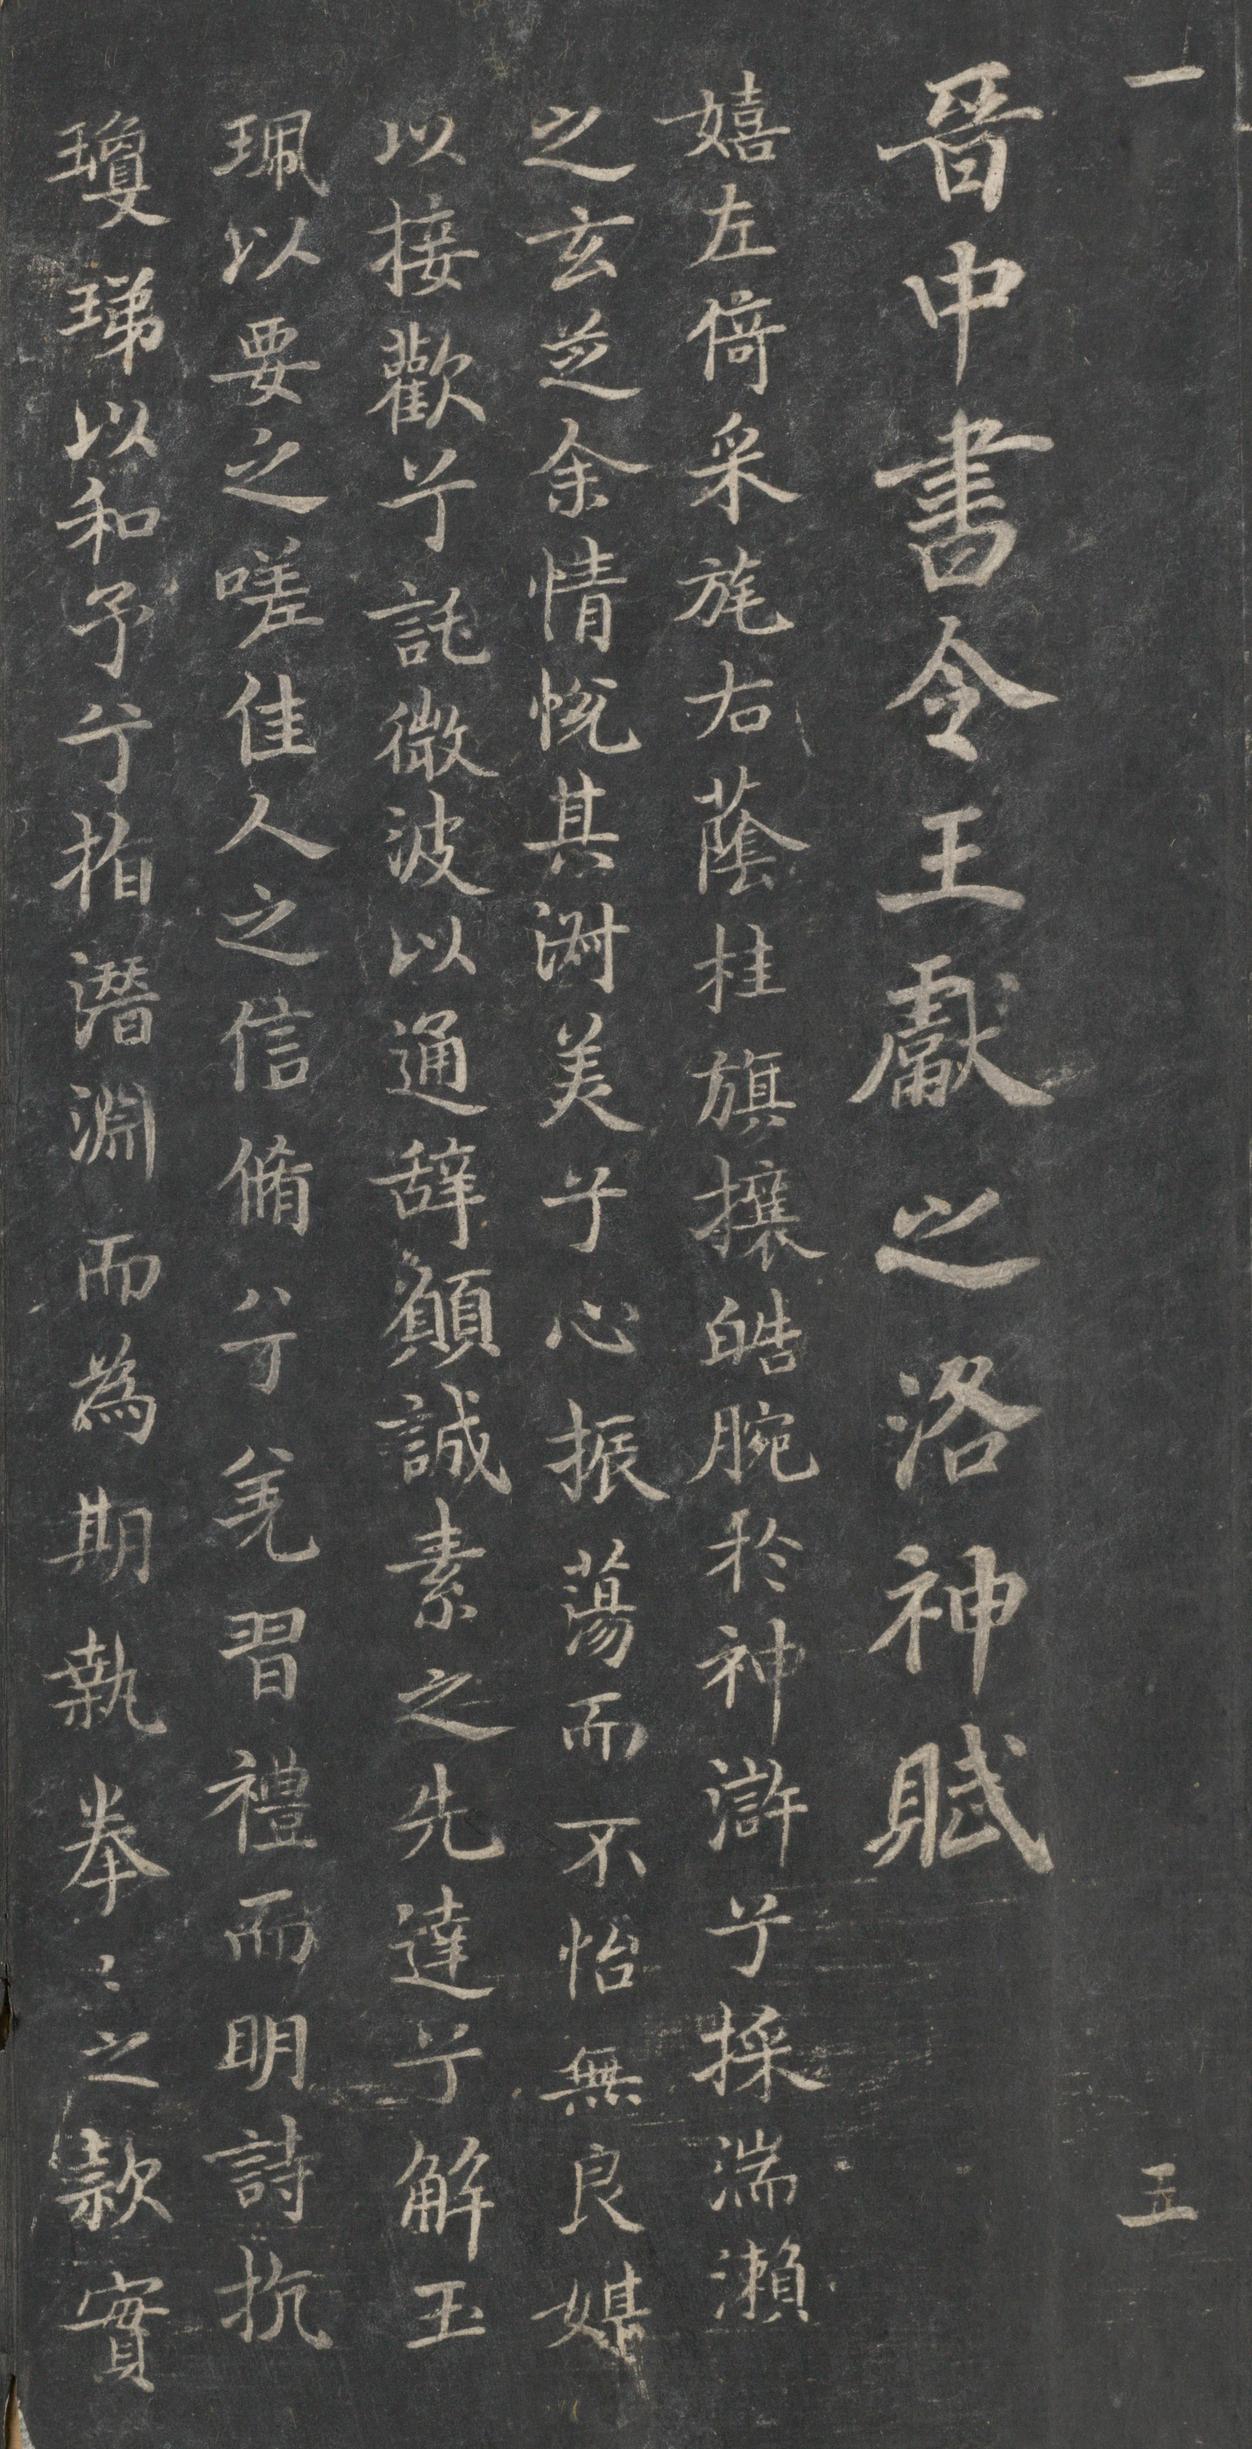 一
五
晉中書令王獻之洛神賦
嬉左倚采旄右蔭桂旗攘皓腕於神滸兮採湍瀨
之玄芝余情悅其淑美兮心振蕩而不怡無良媒
以接歡兮託微波以通辞願誠素之先達兮解玉
珮以要之嗟佳人之信脩兮羌習禮而明詩抗
瓊珶以和予兮指潛淵而為期執拳〻之款實